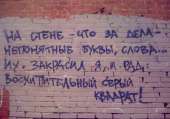 НА СТЕНЕ - ЧТО ЗА ДЕЛА -
НЕПОНЯТНЫЕ БУКВЫ, СЛОВА...
ИХ ЗАКРАСИЛ Я, И РАД,
ВОСХИТИТЕЛЬНЫЙ СЕРЫЙ
КВАДРАТ!